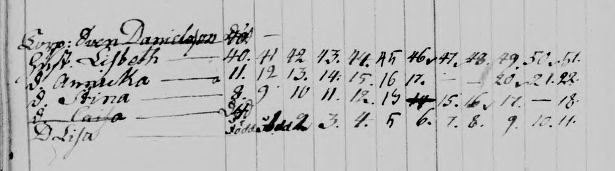 Corp: Sven Danielson död —
Hust. Lisbeth — 40. 41 42 43. 44. 45 46. 47. 48. 49. 50. 51.
d. Annicka — 11. 12 13. 14. 15. 16 17. — — 20. 21. 22.
d. Stina — 8. 9 10 11. 12. 13 14 15. 16. 17. — 18.
d. Caisa — död
D Lisa född 2 3. 4. 5 6. 7. 8. 9. 10. 11.